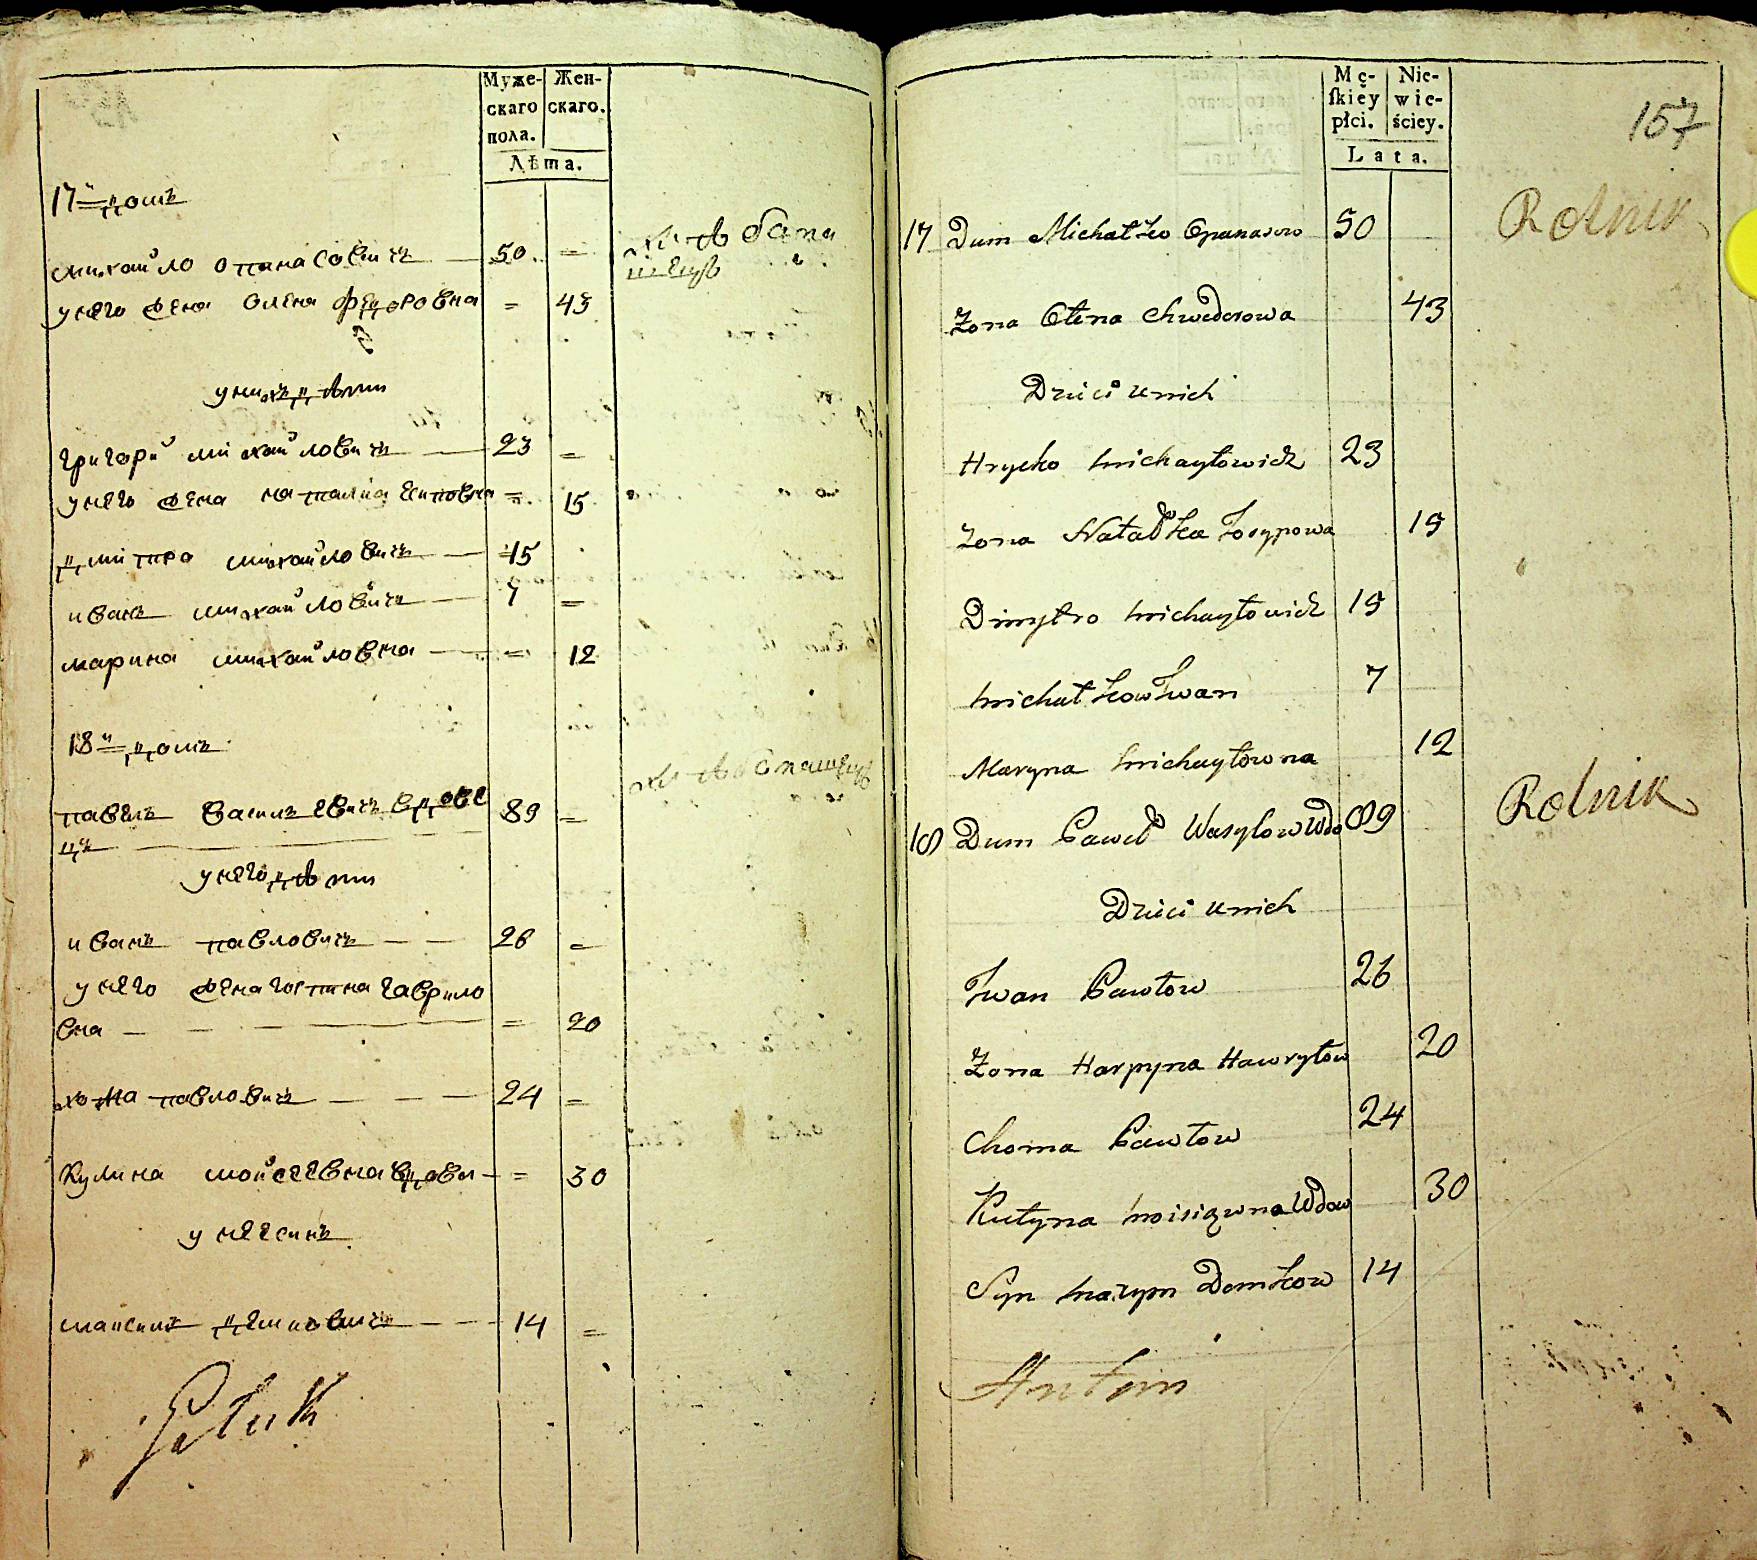 Муже-
скаго
пола.
Жен-
скаго.
Лѣта.
17й домъ
михайло опанасовичъ 50 =
хлѣбопа
шецъ
унего жена олена федоровна = 43
унихъ дѣти
григорй михайловичъ 23 =
унего жена наталиа есиповна = 15
дмитро михайловичъ 15
иванъ михайловичъ 7 =
марина михайловна = 12
18й домъ
хлѣбопашецъ
павелъ василевичъ вдове
цъ 89 =
унего дѣти
иванъ павловичъ 26 =
унего жена гаврило
вна = 20
хома павловичъ 24 =
кулина мойсеевна вдова = 30
унеесинъ
максимъ демковичъ 14 =
157
Mę-
ſkiéy
płci.
Nie-
wie-
ściey.
Lata.
17 Dum Michałko Opanasow 50 Rolnik
Żona Ołena Chwedorowa 43
Dzieci unich
Hrycko Michayłowicz 23
Żona Natałka Josypowa 15
Dmytro Michayłowicz 15
Michałkow Iwan 7
Maryna Michayłowna 12
18 Dum Paweł Wasylow Wdo 89 Rolnik
Dzieci unich
Iwan Pawłow 26
Żona Harpyna Hawryłow 20
Choma Pawłow 24
Kułyna Moisiowna Wdow 30
Syn Maxym Demkow 14
Antoni